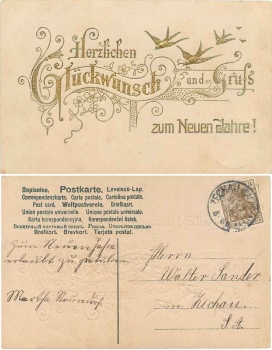 Herzlichen
Glückwunsch und Gruß
zum Neuen Jahre!
Dopisnice. Postkarte. Levelezo-Lap.
Correspondenzkarte. Carte postale. Cartolina postale.
Post card. Weltpostverein. Briefkaart.
Union postale universelle. Unione postale universale.
Karta korespondencyjna. Korespondenční lístek.
Brefkort. Brevkort. Tarjeta postal.
Zum Neuen Jahre
erlaubt zu gratulieren
Martha
Herrn
Walter Sander
in Zechau
S. A.